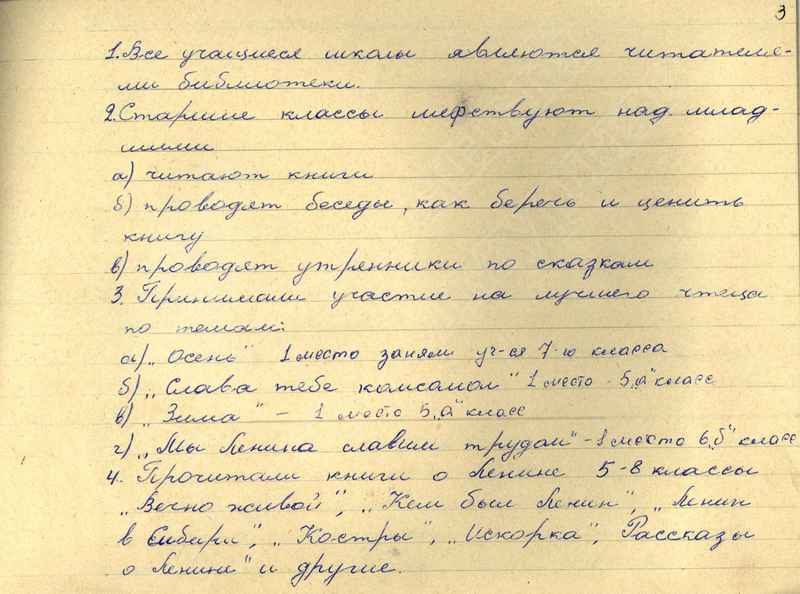 3
1. Все учащиеся школы являются читателя-
ми библиотеки.
2. Старшие классы шефствуют над млад-
шими
а) читают книги
б) проводят беседы, как беречь и ценить
книгу
в) проводят утренники по сказкам
3. Принимали участие на лучшего чтеца
по темам:
а) „Осень" 1 место заняли уч-ся 7-го класса
б) „Слава тебе комсомол" 1 место - 5„а" класс
в) „Зима" - 1 место 5„а" класс
г) „Мы Ленина славим трудом" - 1 место 6„б" класс
4. Прочитали книги о Ленине 5-8 классы
„Вечно живой", „Кем был Ленин", „Ленин
в Сибири", „Костры", „Искорка", Рассказы
о Ленине" и другие.